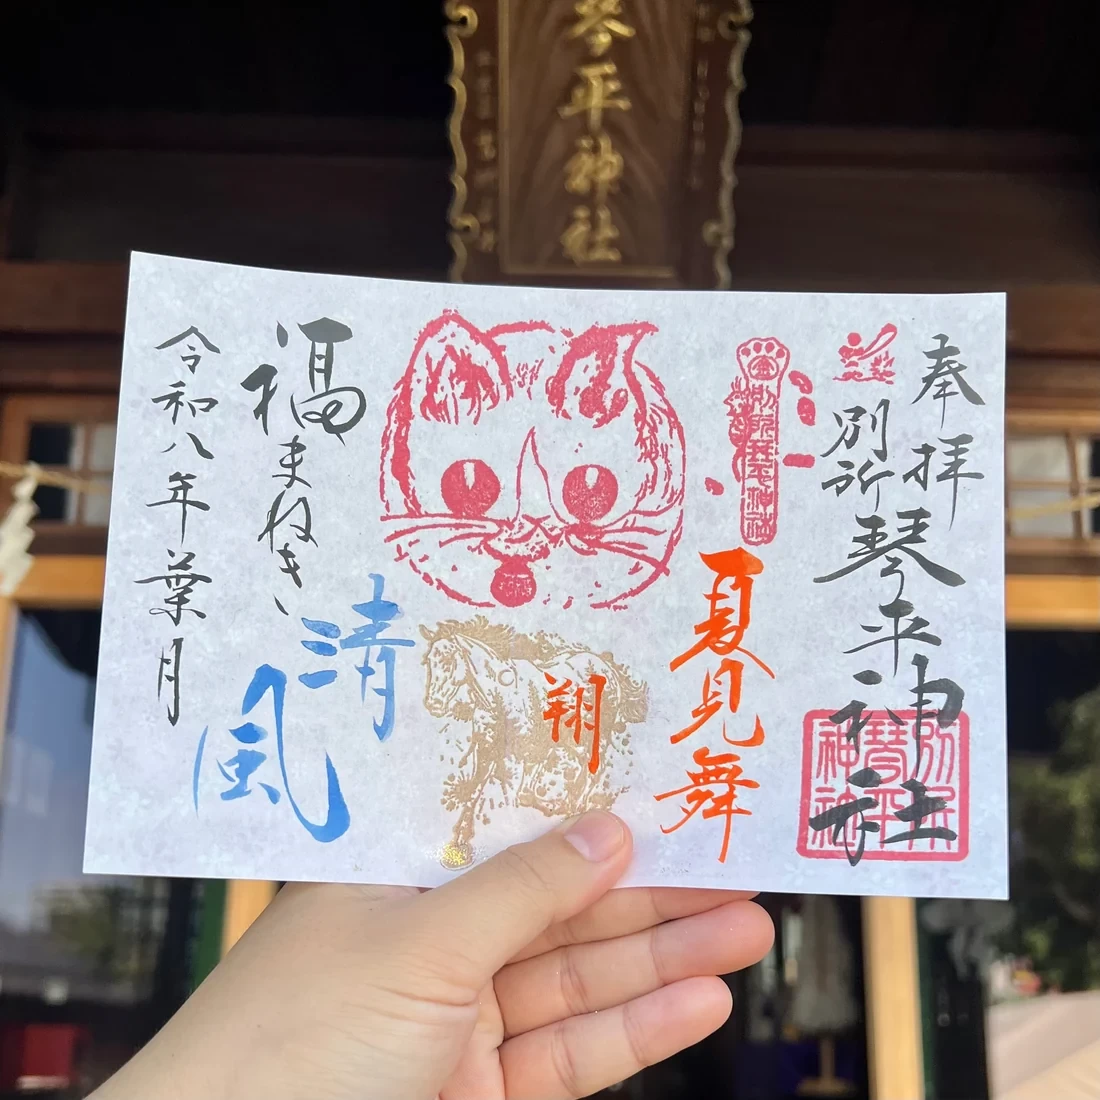 琴平神社
奉拝
別所
琴平神社
夏見舞
翔
福まねき
清風
令和八年葉月
別所琴平神社